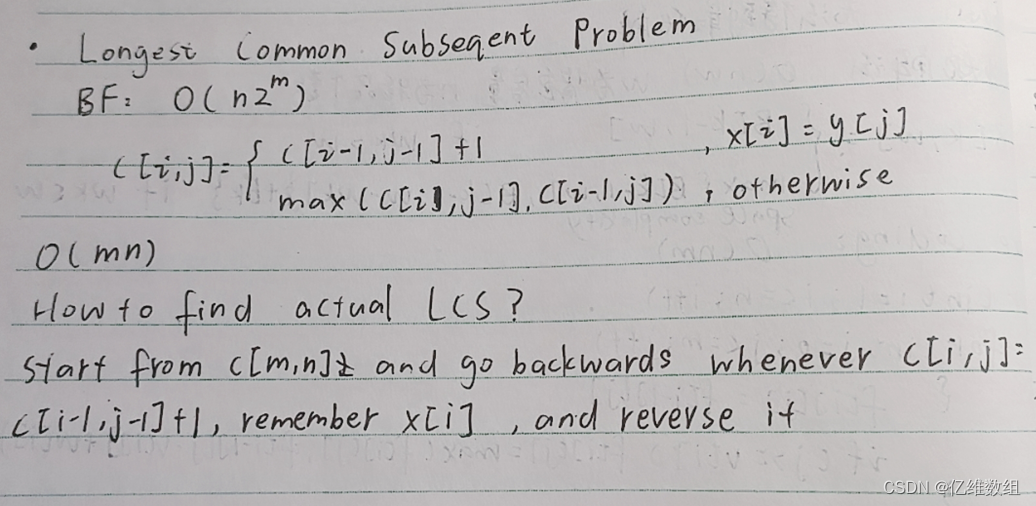 • Longest Common Subseqent Problem
BF: O(n2^m)
C[i,j]= { C[i-1,j-1]+1 , x[i]=y[j]
max(C[i,j-1], C[i-1,j]) , otherwise
O(mn)
How to find actual LCS?
Start from C[m,n] and go backwards whenever C[i,j]=
C[i-1,j-1]+1, remember x[i] , and reverse it
CSDN @亿维数组